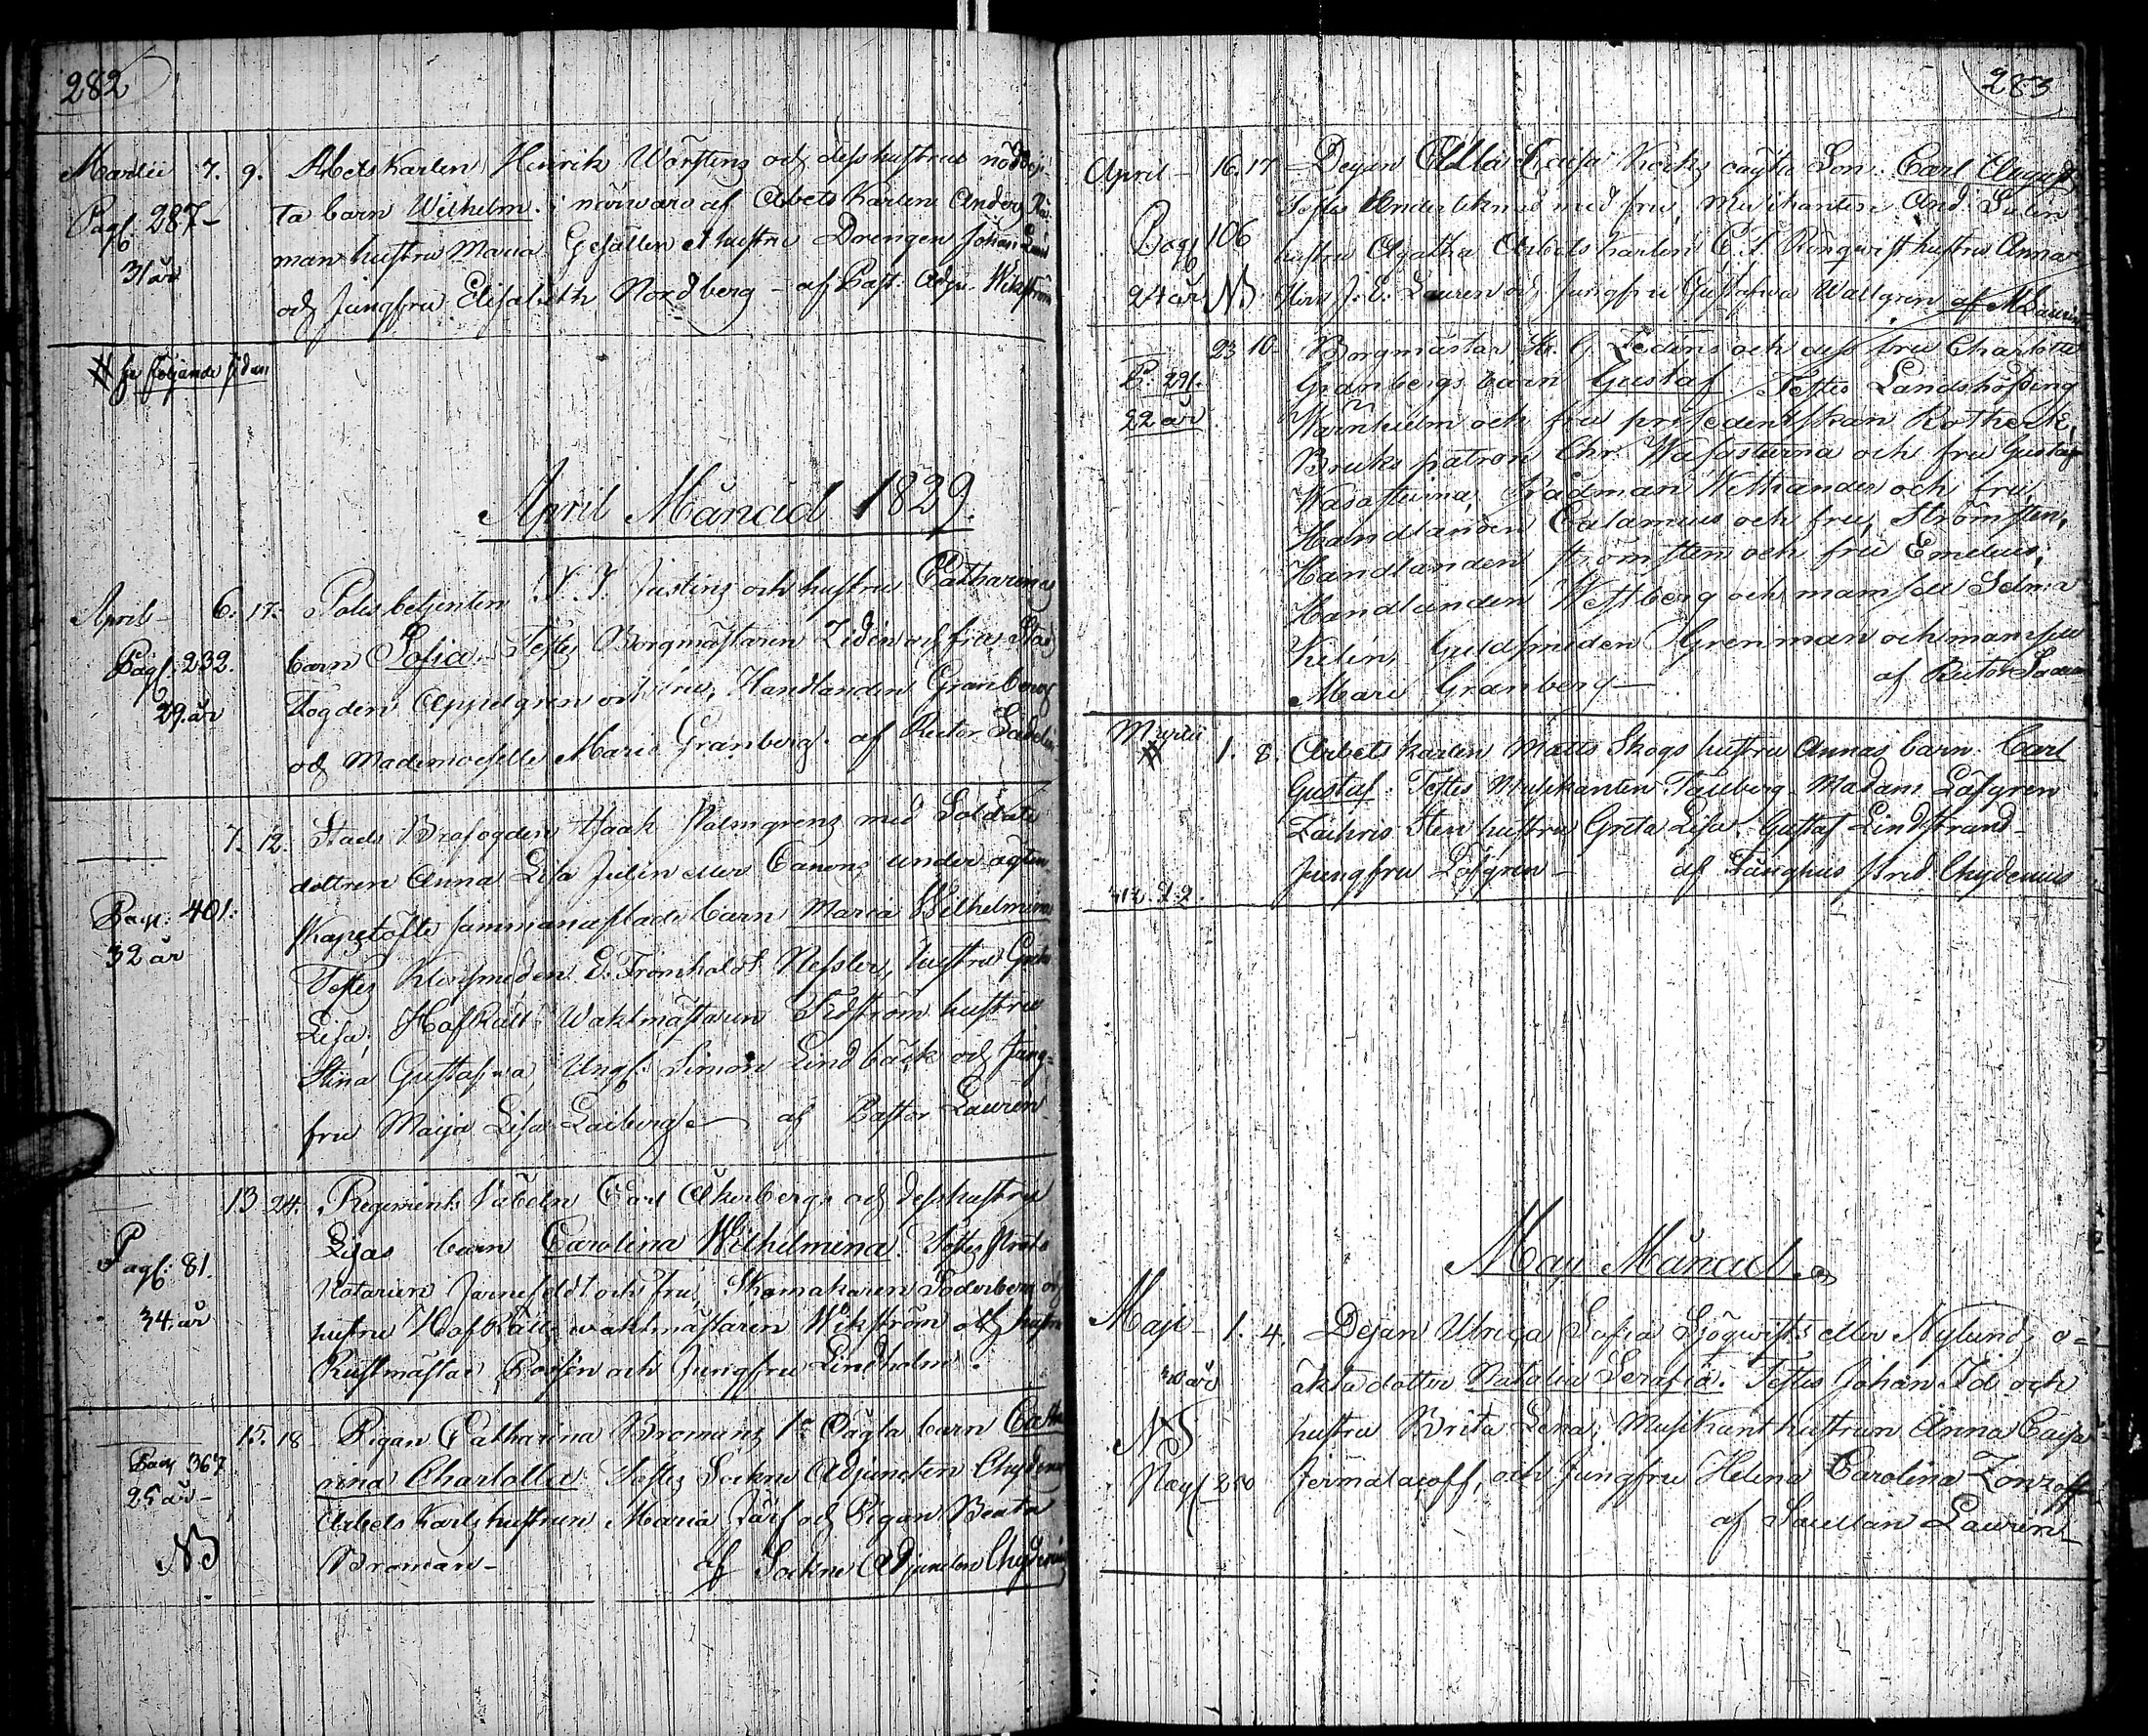 282
Martii 7. 9. Arbetskarlen Henrik Wörstens och dess hustrus nöddöp-
Pag. 287- ta barn Wilhelm. i närwaro af Arbets Karlen Anders
31 år man hustru Maria Gesällen hustru Drengen Johan
och Jungfru Elisabeth Nordberg - af Past. Adju. Wikström
# se följande sidan
April Månad 1839.
April 6. 17. Polisbetjenten Justins och hustru Catharinas
Pag. 232. barn Sofia. Testes Borgmästaren Zedin och fru
29. år fogden Appelgren och fru, Handlanden Granberg
och Mademoiselle Marie Granberg. af Rector
7. 12. Stads Brofogden Isaak Palmgrens med Soldats
dottren Anna Lisa Julin eller Canons under ägten-
Pag. 401. skapslöfte sammanaflade barn Maria Wilhelmina
32 år Testes Klensmeden E. Tromholdt Nessler, hustru Greta
Lisa, Hofrätts Waktmästaren Tidström hustru
Stina Gustafwa, Ungk. Simon Lindbäck och Jung-
fru Maija Lisa af Pastor Lauren
13 24. Regiments Carl Åkerbergs och dess hustru
Pag. 81. Lisas barn Carolina Wilhelmina. Testes
34. år Notarien Jarnefeldt och fru, Skomakaren Söderberg och
hustru Hofrätts waktmästaren Wikström och hustru
Rustmästar och Jungfru Lindholm.
15. 18 Pigan Catharina Bromans 1a Oägta barn Catha
Pag 367 rina Charlotta Testes Sockne Adjuncten Chydenius
25 år - Arbets Karls hustrun Maria Järf och Pigan Beata
NB Broman - af Sockne Adjuncten Chydenius
283
April - 16. 17 - Dejan Ulla Caisa Kecks oägta Son. Carl August
Pag 106 Testes Underlöjtnant med fru, Musikanten And. Salin
hustru Agatha Arbets Karlen C. F. Rönqwist hustru Anna
24 år NB Herr J. E. Lauren och Jungfru Gustafwa Wallgren af Lauren
23 10 - Borgmästar K. G. Zedins och dess fru Charlotta
P. 291. Granbergs barn Gustaf Testes Landshöfding
22 år Wärnhielm och fru presidentskan Rotkerk,
Bruks patron Chr. Wasastierna och fru Gustafwa
Wasastierna, Rådman Wethander och fru,
Handlanden Calamnius och fru, Strömsten,
Handlanden Strömsten och fru Emelius,
Handlanden Westberg och mamsell Selma
Kelin, Guldsmeden Grenman och mamsell
Mari Granberg - af Rector
Martii
# 1. 8. Arbets karlen Matts Skogs hustru Annas barn. Carl
Gustaf. Testes Musikanten Tauberg - Madam Löfgren
Zachris Sten hustru Greta Lisa. Gustaf Lindstrand -
Jungfru Löfgren - af Länghus Pred. Chydenius
May Månad.
Maji - 1. 4. Dejan Ulrica Sofia Sjöqwists eller Nylund, o-
äkta dotter Natalia Serafia. Testes Johan Id och
NB hustru Brita Lena, Musikant hustrun Anna Caisa
Pag 250 Jermalacoff, och Jungfru Helena Carolina Zonzoff
af Sacellan Lauren